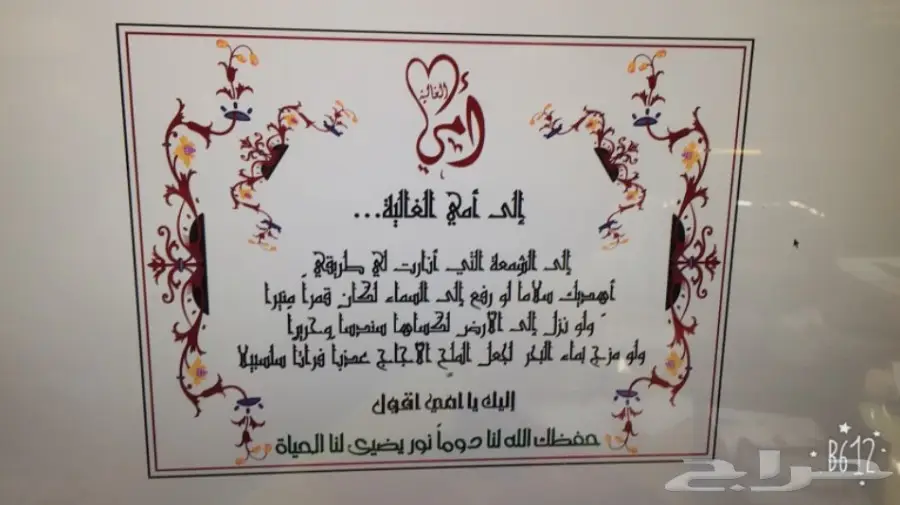 أمي
الغالية
إلى أمي الغالية...
إلى الشمعة التي أنارت لي طريقي
أهديك سلاما لو رفع إلى السماء لكان قمرا منيرا
ولو نزل إلى الارض لكساها سندسا وحريرا
ولو مزج بماء البحر لجعل الملح الاجاج عذبا فراتا سلسبيلا
اليك يا امي اقول
حفظك الله لنا دوماً نور يضيئ لنا الحياة
B612
حراج